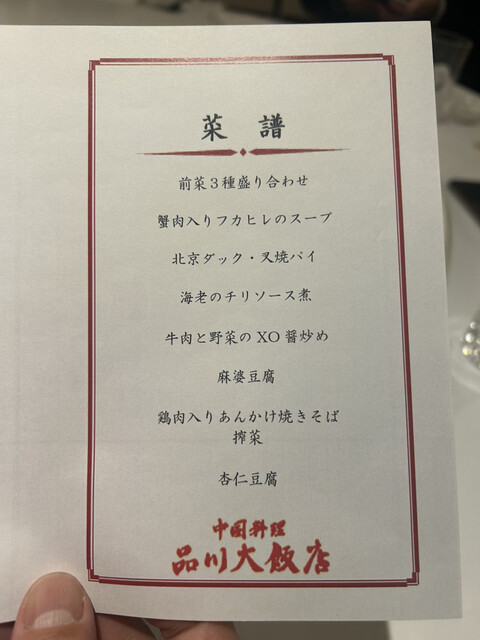 菜 譜
前菜3種盛り合わせ
蟹肉入りフカヒレのスープ
北京ダック・叉焼パイ
海老のチリソース煮
牛肉と野菜のXO醤炒め
麻婆豆腐
鶏肉入りあんかけ焼きそば
搾菜
杏仁豆腐
中国料理
品川大飯店